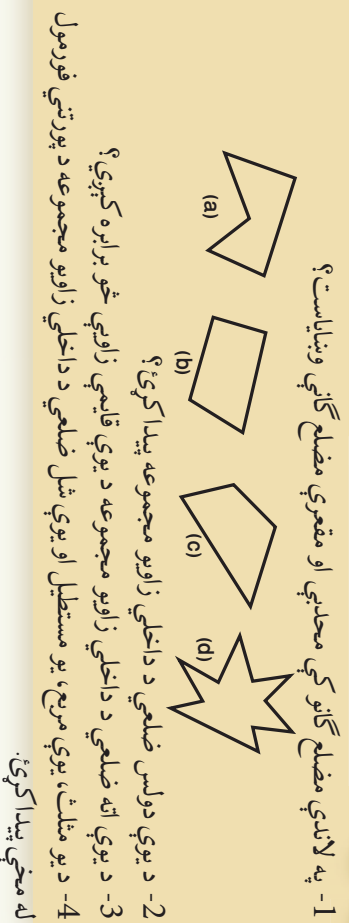 1- په لاندې مضلع گانو کې محدبې او مقعرې مضلع گانې وښایاست؟
(a)
(b)
(c)
(d)
2- د یوې دولس ضلعي د داخلي زاویو مجموعه پیدا کړئ؟
3- د یوې اته ضلعي د داخلي زاویو مجموعه د یوې قایمې زاویې څو برابره کېږي؟
4- د یو مثلث، یوې مربع، یو مستطیل او یوې شل ضلعي د داخلي زاویو مجموعه د پورتني فورمول
له مخې پیدا کړئ.